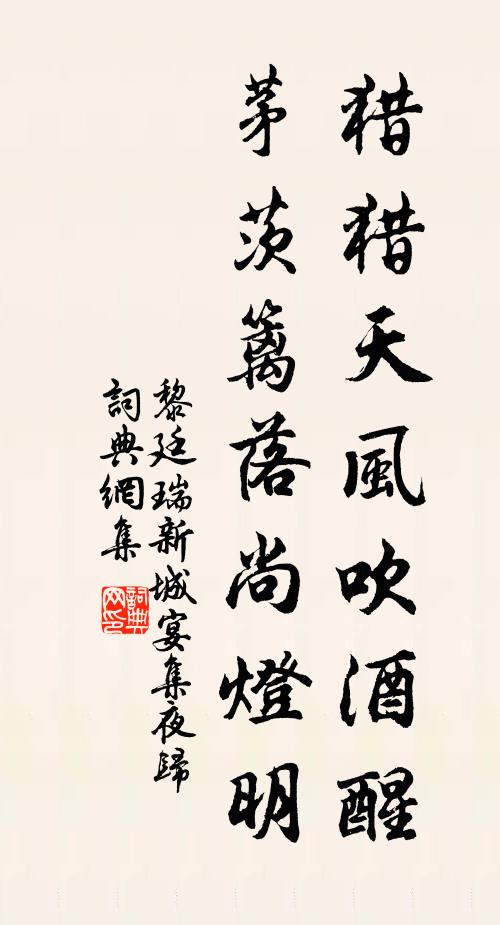 猎猎天風吹酒醒
茅茨籬落尚燈明
黎廷瑞新城宴集夜歸
詞典網集
詞典
网印